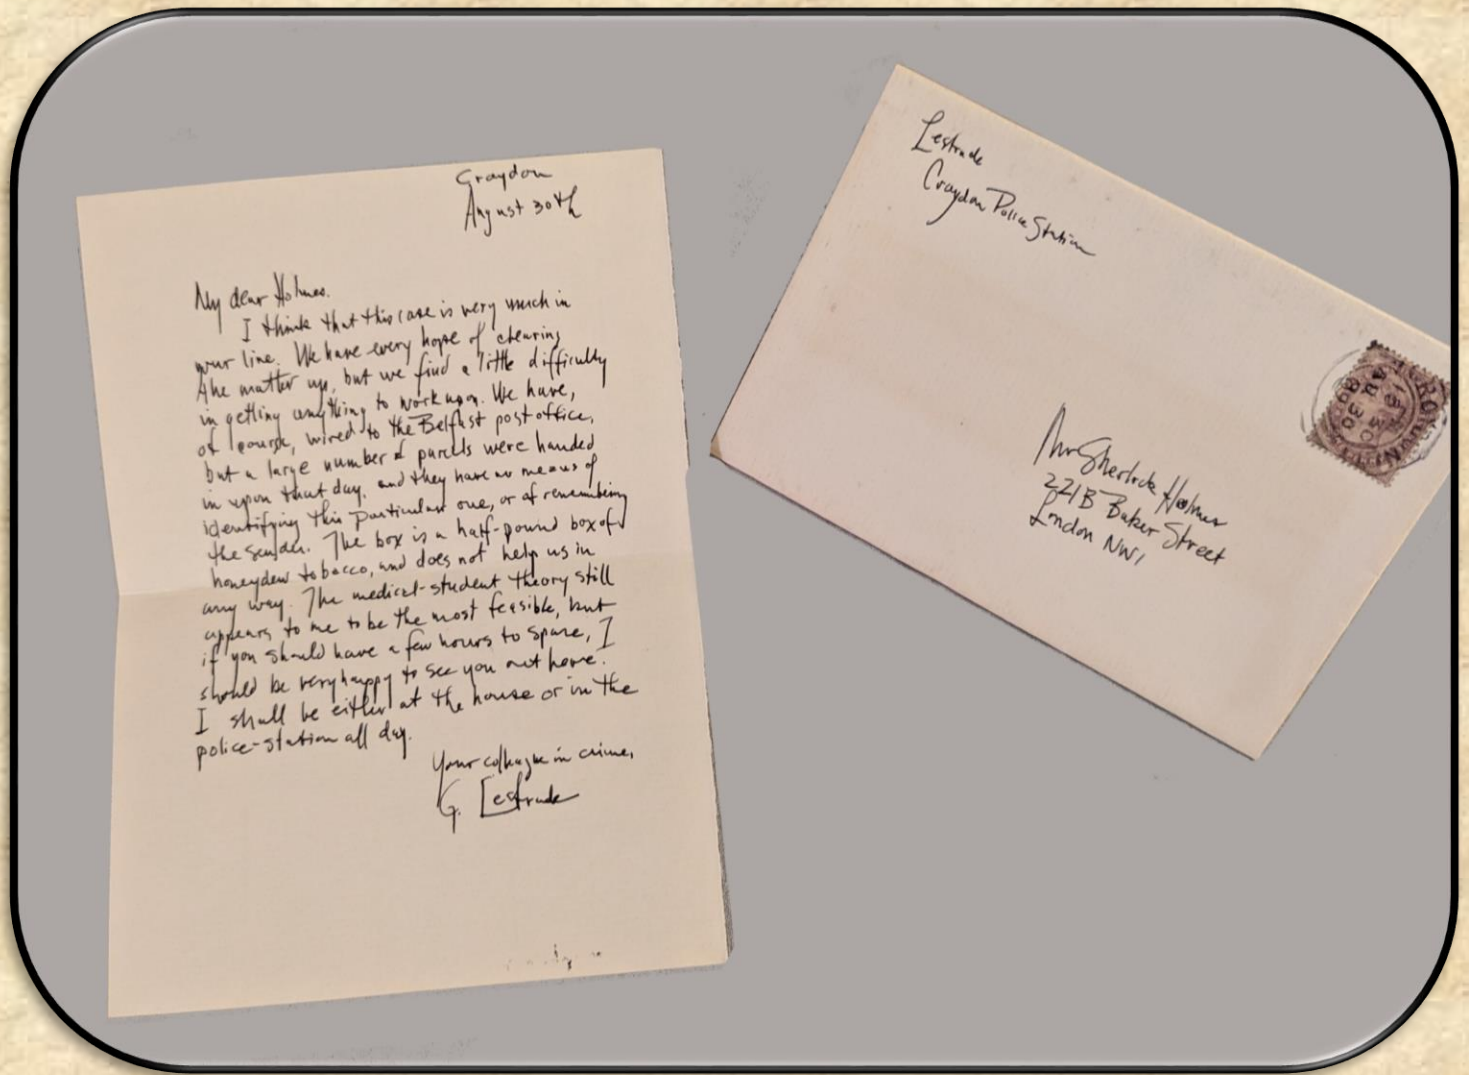 Croydon
August 30th
My dear Holmes.
I think that this case is very much in
your line. We have every hope of clearing
the matter up, but we find a little difficulty
in getting anything to work upon. We have,
of course, wired to the Belfast post office,
but a large number of parcels were handed
in upon that day, and they have no means of
identifying this particular one, or of remembering
the sender. The box is a half-pound box of
honeydew tobacco, and does not help us in
any way. The medical-student theory still
appears to me to be the most feasible, but
if you should have a few hours to spare, I
should be very happy to see you out here.
I shall be either at the house or in the
police-station all day.
Your colleague in crime,
G. Lestrade
Lestrade
Croydon Police Station
Mr Sherlock Holmes
221B Baker Street
London NW1
CROYDON
AU 30
89